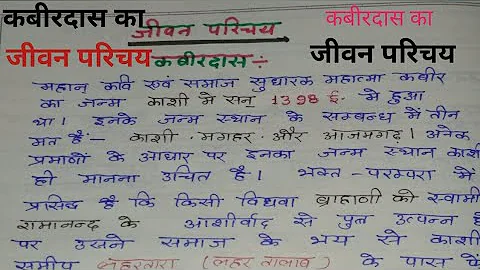 कबीरदास का
जीवन परिचय
जीवन परिचय
कबीरदास का
जीवन परिचय
कबीरदास÷
महान कवि एवं समाज सुधारक महात्मा कबीर
का जन्म काशी में सन् 1398 ई. में हुआ
था। इनके जन्म स्थान के सम्बन्ध में तीन
मत हैं:- काशी, मगहर और आजमगढ़। अनेक
प्रमाणों के आधार पर इनका जन्म स्थान काशी
ही मानना उचित है। भक्त-परम्परा में
प्रसिद्ध है कि किसी विधवा ब्राह्मणी को स्वामी
रामानन्द के आशीर्वाद से पुत्र उत्पन्न ह
पर उसने समाज के भय से काशी
समीप लहरतारा (लहर तालाब) के पास फें